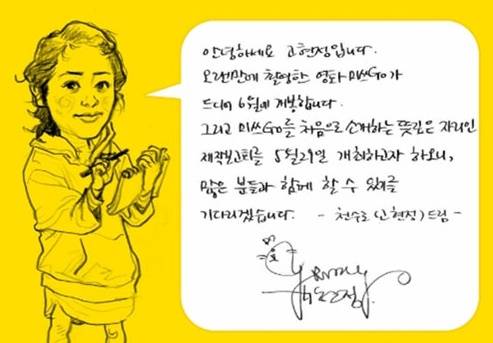 안녕하세요 고현정입니다.
오랜만에 촬영한 영화 미쓰Go가
드디어 6월에 개봉합니다.
그리고 미쓰Go를 처음으로 소개하는 뜻깊은 자리인
제작보고회를 5월21일 개최하고자 하오니,
많은 분들과 함께 할 수 있기를
기다리겠습니다. - 천수로 (고현정) 드림 -
고현정.